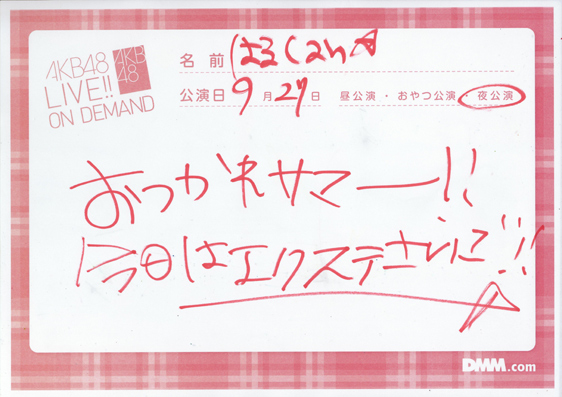 AKB48
LIVE!!
ON DEMAND
AKB
48
名前 はるくaん☆
公演日 9月27日 昼公演・おやつ公演・夜公演
おつかれサマー!!
今日はエクステさいご!!
DMM.com